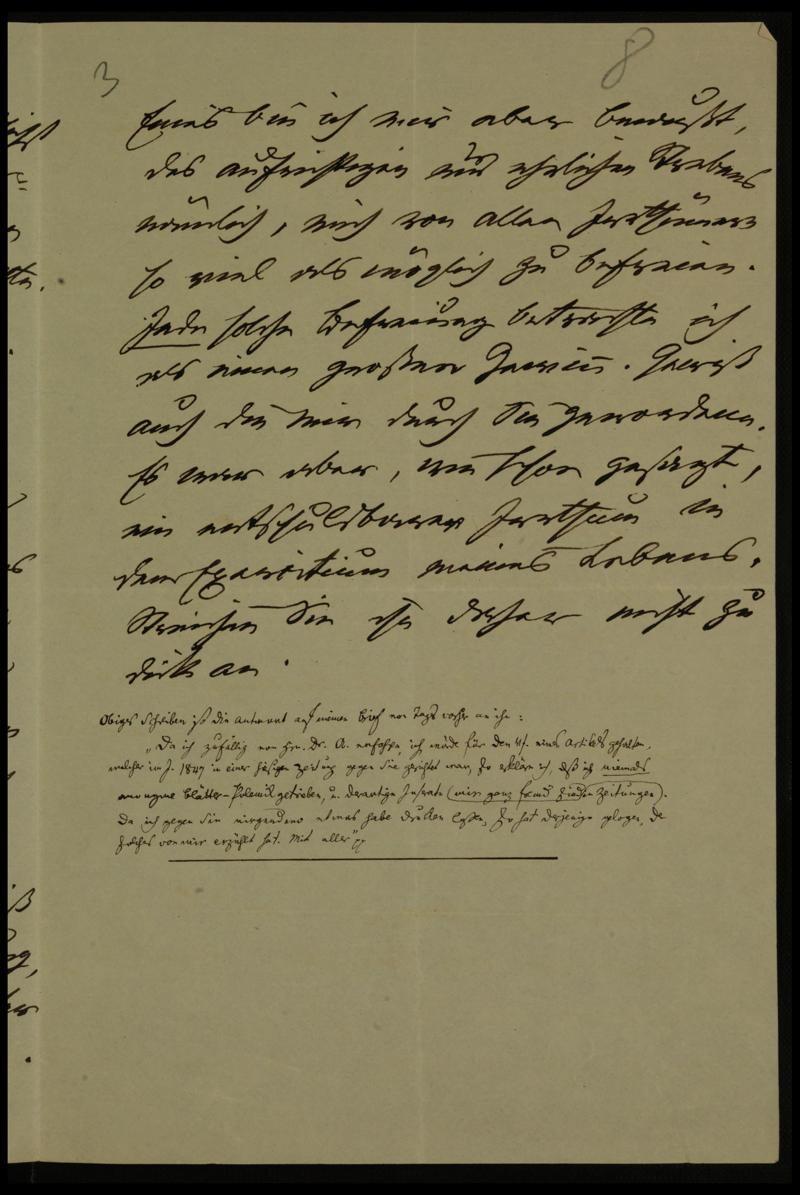 3 8
Eines bin ich mir aber bewußt,
des aufrichtigen und ehrlichen Strebens
nämlich, mich von allen Irrthümern
so viel als möglich zu befreien.
Jede solche Befreiung betrachte ich
als einen großen Gewinn. Gewiß
auch die mir durch Sie gewordene.
Es war aber, wie schon gesagt,
ein entschuldbarer Irrthum in
dem Exercitium meines Lebens.
Streichen Sie ihn daher nicht zu
dick an.
Obiges Schreiben ist die Antwort auf meinen Brief von Tags vorher an ihn:
„Da ich zufällig von Hrn. Dr. A. erfahre, ich würde für den Vf. eines Artikels gehalten,
welcher im J. 1847 in einer hiesigen Zeitung gegen Sie gerichtet war, so erkläre ich, daß ich niemals
anonyme Blätter-Polemik getrieben, u. derartige Inserate (mir ganz fremd Zeitungen).
Da ich gegen Sie nirgendwo etwas habe drucken lassen, so hat derjenige gelogen, der
solches von mir erzählt hat. Mit aller"